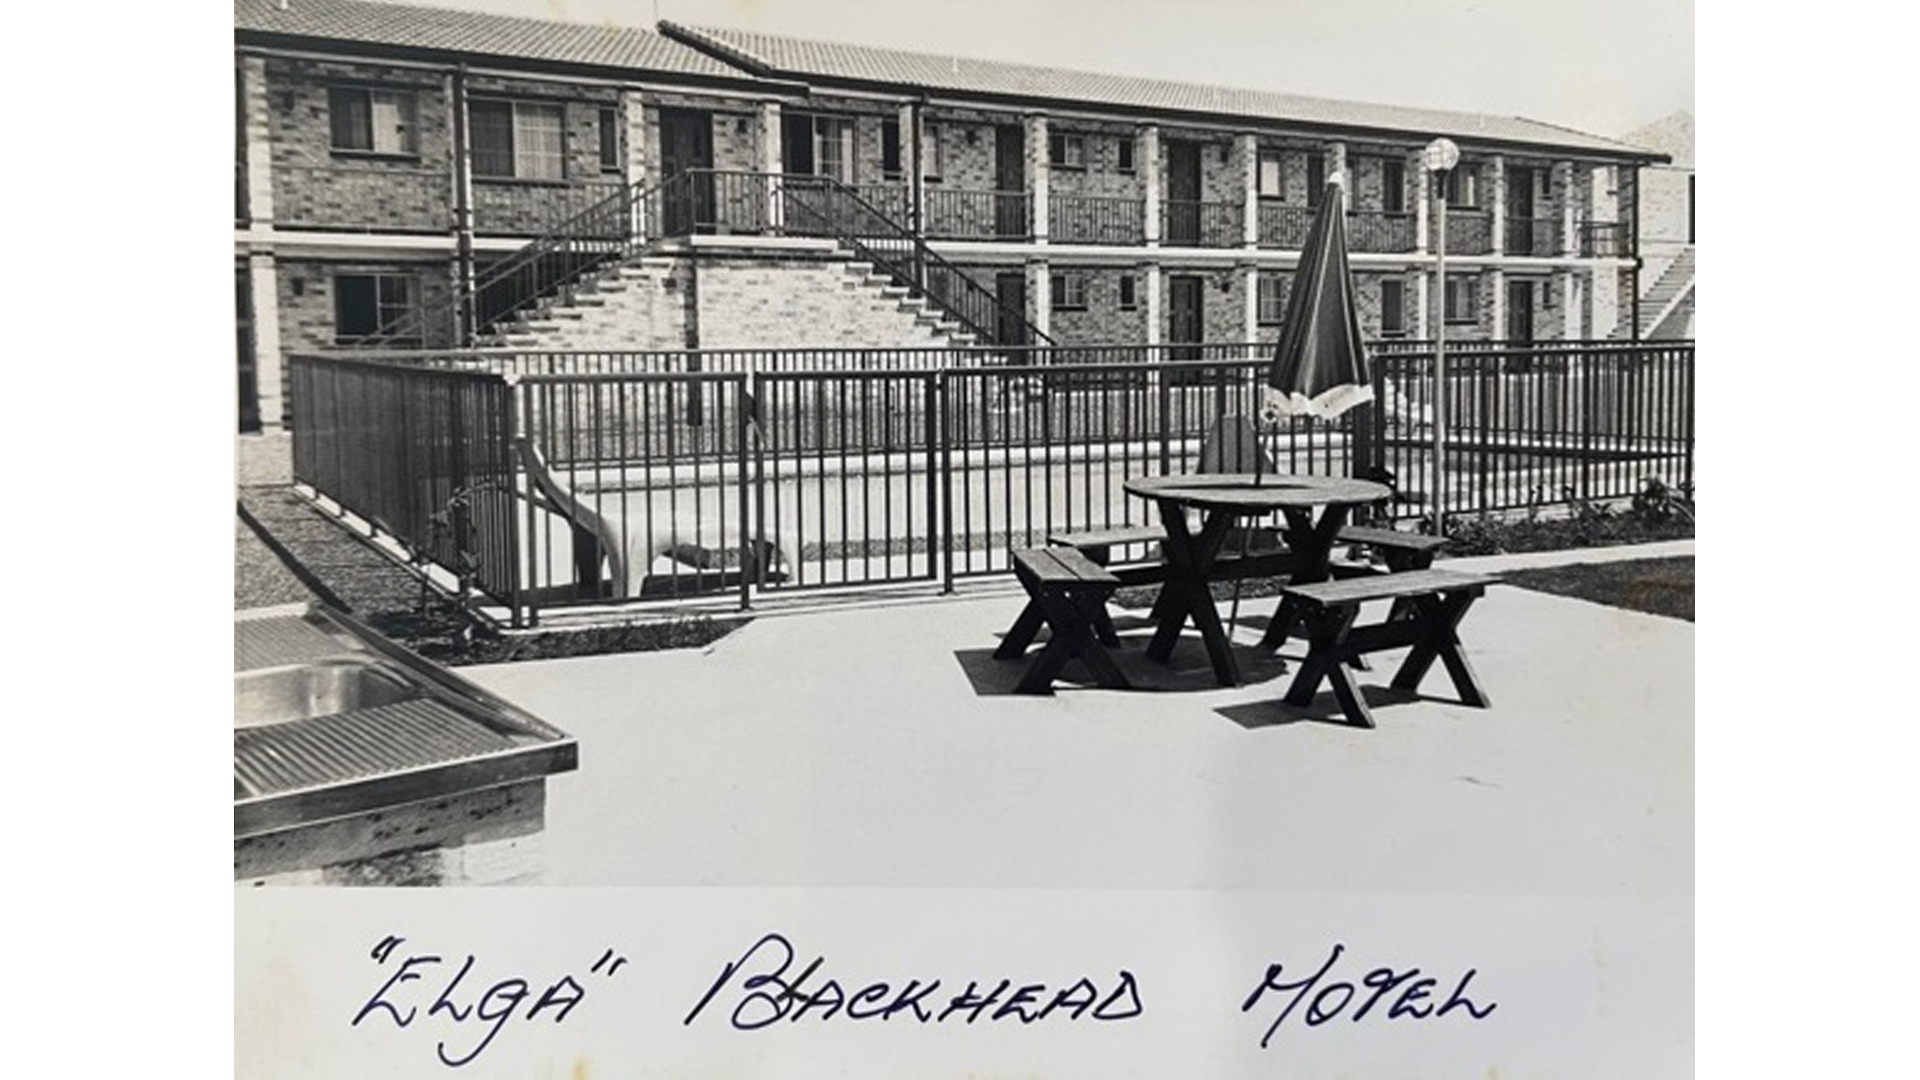 "ELGA" BLACKHEAD MOTEL